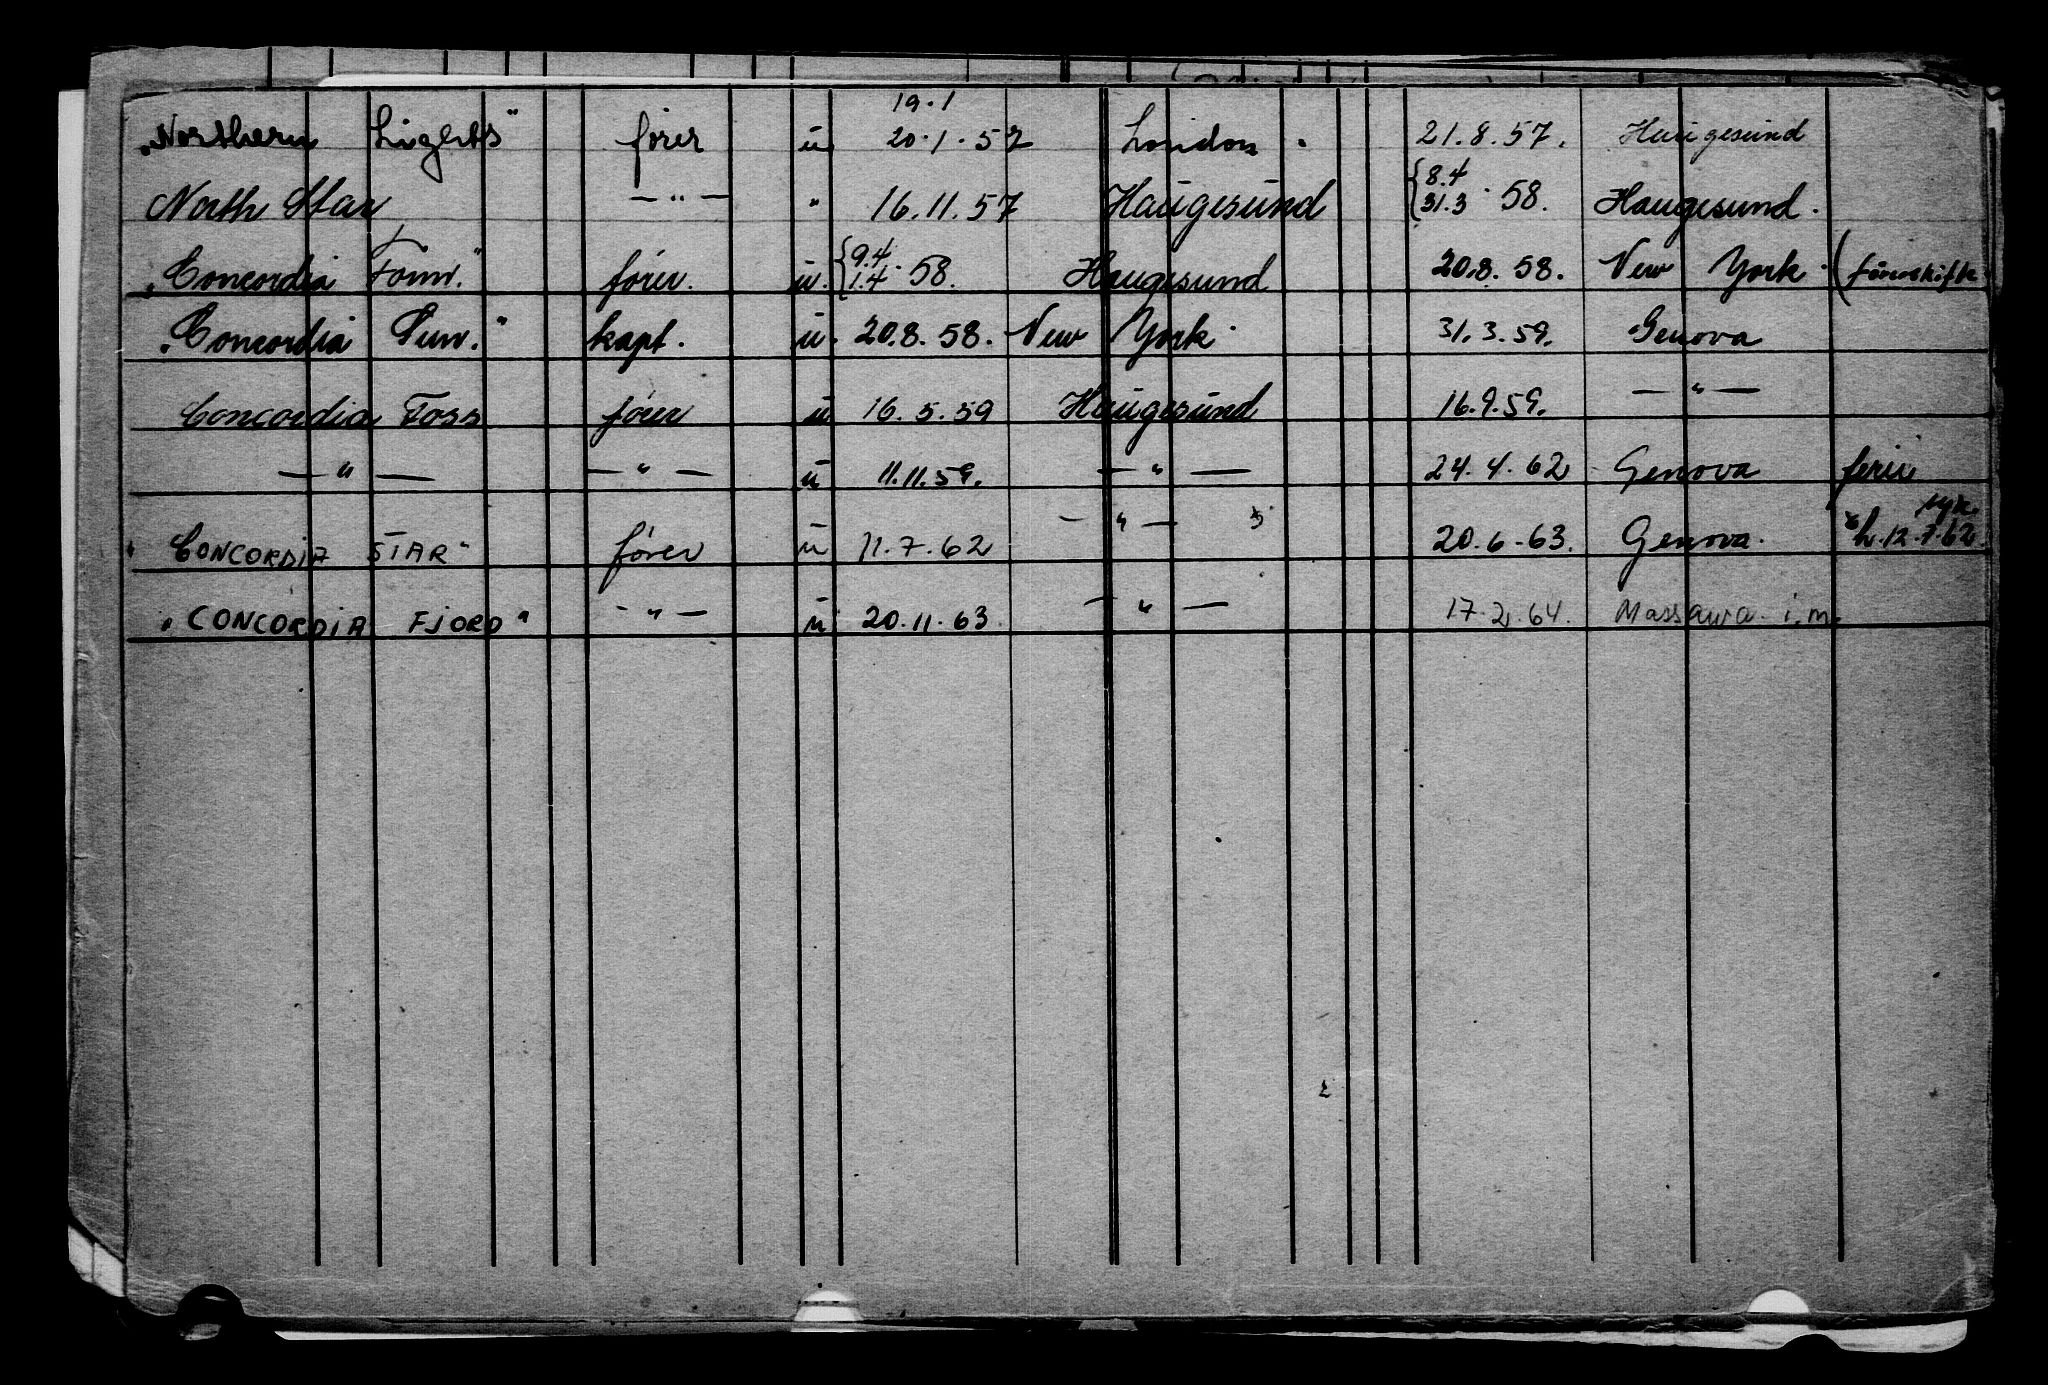 19.1
"Northern Lights" fører u 20.1.57 London. 21.8.57. Haugesund
North Star — " — " 16.11.57 Haugesund {8.4 31.3 .58. Haugesund.
"Concordia Fonn." fører. u. {9.4 1.4 .58. Haugesund 20.8.58. New York. (førerskifte
"Concordia Sun." kapt. u. 20.8.58. New York. 31.3.59. Genova
Concordia Foss fører u 16.5.59 Haugesund 16.9.59. — " —
— " — — " — u 11.11.59. — " — 24.4.62 Genova ferie
"CONCORDIA STAR" fører u 11.7.62 — " — 20.6.63. Genova. syk h. 12.7.62.
"CONCORDIA FJORD" — " — u 20.11.63 — " — 17.2.64. Massawa i.m.